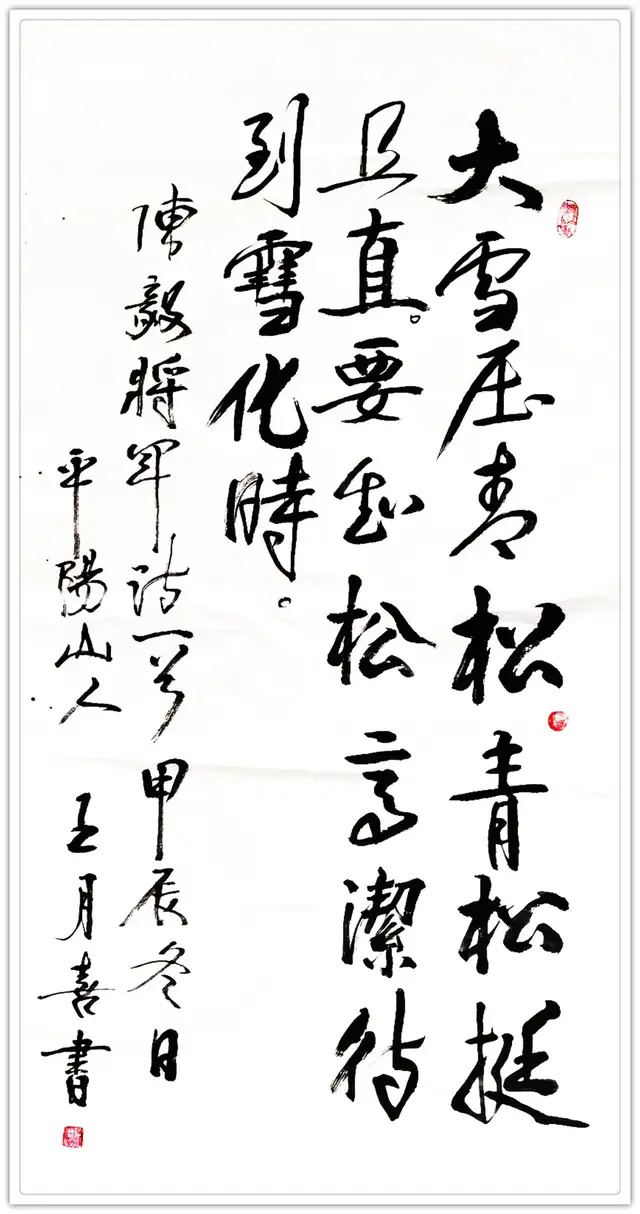 大雪压青松青松挺
且直。要知松高潔待
到雪化時。
陳毅將軍诗一首 甲辰冬日
平陽山人 王月喜書